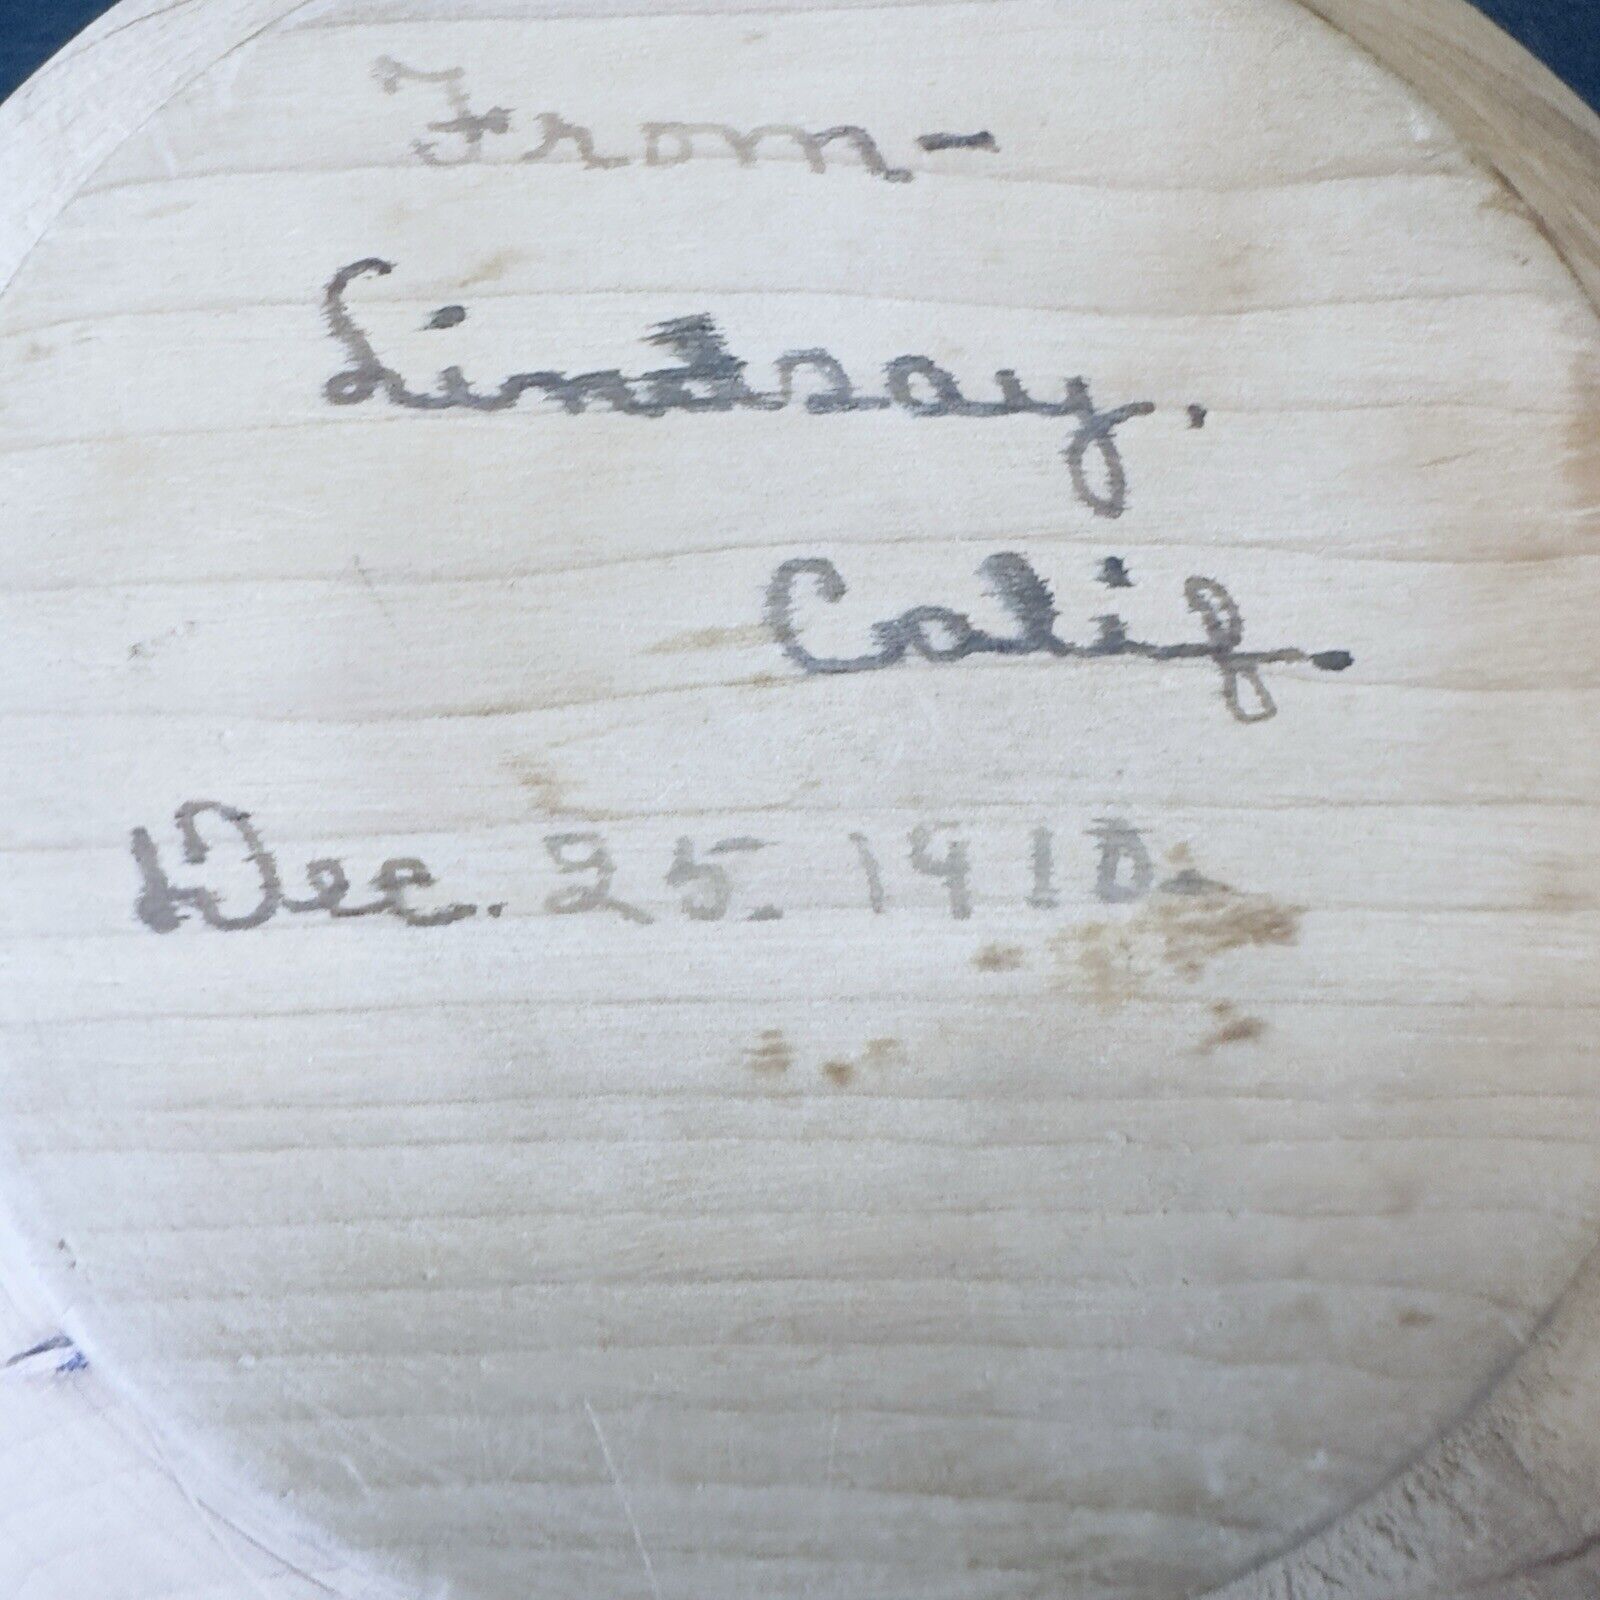 From-
Lindsay.
Calif.
Dec. 25. 1910.